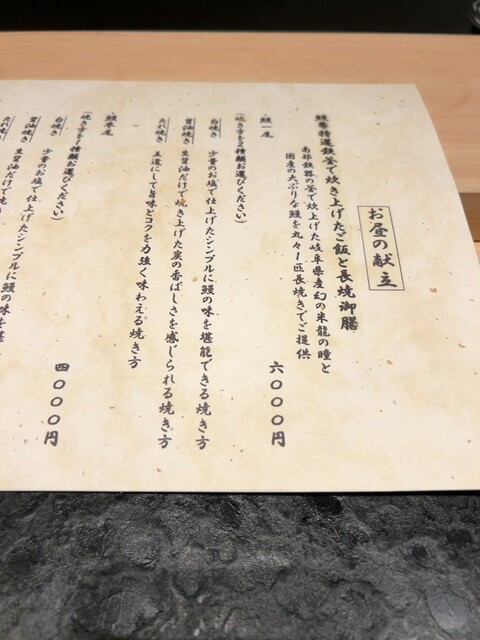 お昼の献立
鰻専特選鉄釜で炊き上げたご飯と長焼御膳
南部鉄器の釜で炊上げた岐阜県産幻の米龍の瞳と
国産の大ぶりな鰻を丸々1匹長焼きでご提供
鰻一尾 六〇〇〇円
(焼き方を2種類お選びください)
白焼き 少量のお塩で仕上げたシンプルに鰻の味を堪能できる焼き方
醤油焼き 生醤油だけで焼き上げた炭の香ばしさを感じられる焼き方
たれ焼き 王道にして旨味とコクを力強く味わえる焼き方
鰻半尾 四〇〇〇円
(焼き方を1種類お選びください)
白焼き 少量のお塩で仕上げたシンプルに鰻の味を堪
醤油焼き 生醤油だけで焼き
たれ焼き